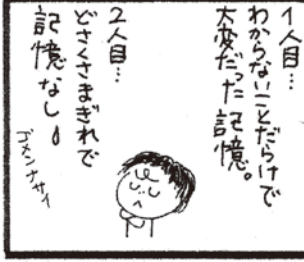 1人目…
わからないことだらけで
大変だった記憶。
2人目…
どさくさまぎれで
記憶なし
ゴメンナサイ